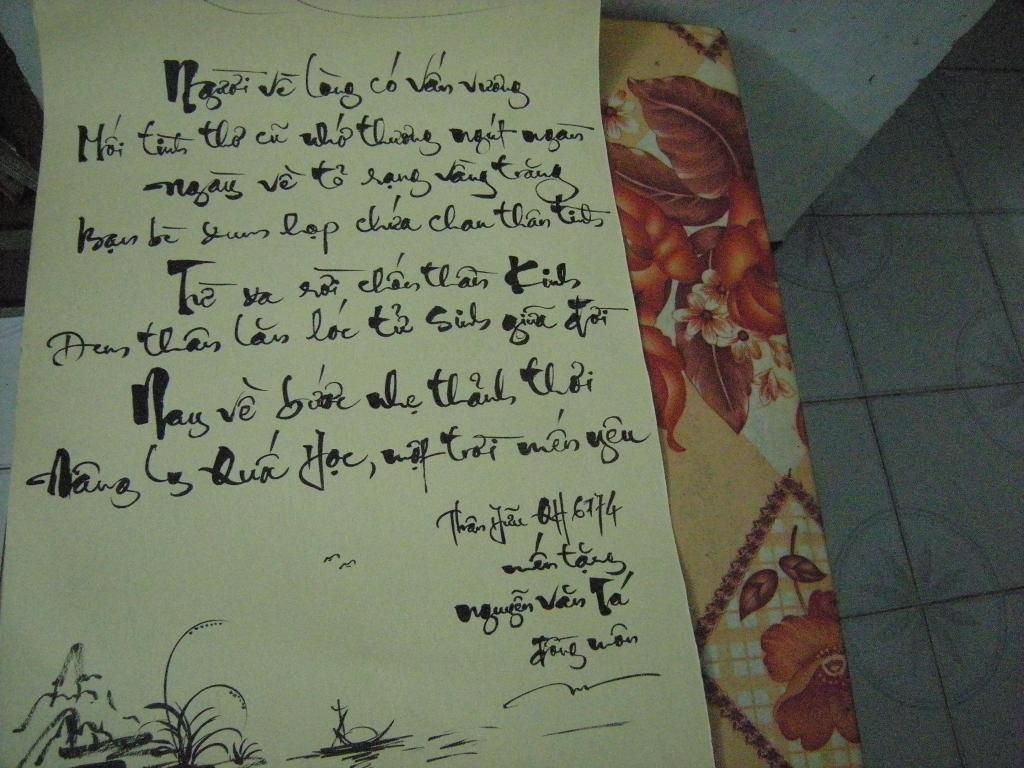 Người về lòng có vấn vương
Mối tình thơ cũ nhớ thương ngút ngàn
ngày về tỏ rạng vầng trăng
Bạn bè sum họp chứa chan thân tình
Từ xa rời chốn thần Kinh
Đem thân lăn lóc tử sinh giữa đời
Nay về bước nhẹ thảnh thơi
Nâng ly Quốc Học, một trời mến yêu
Thân Hữu QH 6774
mến tặng
nguyễn văn Tá
đồng môn